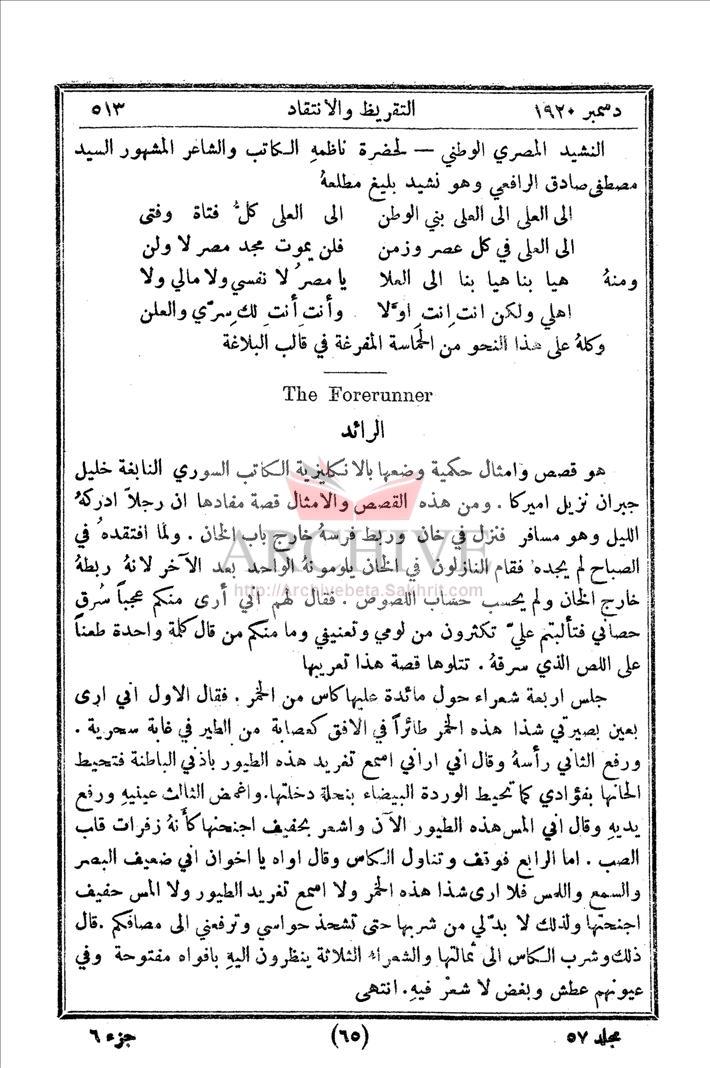 دسمبر ١٩٢٠ التقريظ والانتقاد ٥١٣
النشيد المصري الوطني — لحضرة ناظمهِ الكاتب والشاعر المشهور السيد
مصطفى صادق الرافعي وهو نشيد بليغ مطلعهُ
الى العلى الى العلى بني الوطن الى العلى كلُّ فتاة وفتى
الى العلى في كل عصر وزمن فلن يموت مجد مصر لا ولن
ومنهُ هيا بنا هيا بنا الى العلا يا مصرُ لا نفسي ولا مالي ولا
اهلي ولكن انتِ انتِ اوَّلا وأنتِ أنتِ لكِ سرّي والعلن
وكلهُ على هذا النحو من الحماسة المفرغة في قالب البلاغة
The Forerunner
الرائد
هو قصص وامثال حكمية وضعها بالانكليزية الكاتب السوري النابغة خليل
جبران نزيل اميركا . ومن هذه القصص والامثال قصة مفادها ان رجلاً ادركهُ
الليل وهو مسافر فنزل في خان وربط فرسهُ خارج باب الخان . ولما افتقدهُ في
الصباح لم يجده فقام النازلون في الخان يلومونهُ الواحد بعد الآخر لانهُ ربطهُ
خارج الخان ولم يحسب حساب اللصوص . فقال لهم اني أرى منكم عجباً سُرق
حصاني فتألبتم عليّ تكثرون من لومي وتعنيفي وما منكم من قال كلمة واحدة طعناً
على اللص الذي سرقهُ . تتلوها قصة هذا تعريبها
جلس اربعة شعراء حول مائدة عليها كاس من الخمر . فقال الاول اني ارى
بعين بصيرتي شذا هذه الخمر طائراً في الافق كعصابة من الطير في غابة سحرية .
ورفع الثاني رأسهُ وقال اني اراني اسمع تغريد هذه الطيور باذني الباطنة فتحيط
الحانها بفؤادي كما تحيط الوردة البيضاء بنحلة دخلتها . واغمض الثالث عينيهِ ورفع
يديهِ وقال اني المس هذه الطيور الآن واشعر بحفيف اجنحتها كأنهُ زفرات قلب
الصب . اما الرابع فوقف وتناول الكاس وقال اواه يا اخوان اني ضعيف البصر
والسمع واللمس فلا ارى شذا هذه الخمر ولا اسمع تغريد الطيور ولا المس حفيف
اجنحتها ولذلك لا بدّ لي من شربها حتى تشحذ حواسي وترفعني الى مصافكم . قال
ذلك وشرب الكاس الى ثمالتها والشعراء الثلاثة ينظرون اليهِ بافواه مفتوحة وفي
عيونهم عطش وبغض لا شعرَ فيهِ . انتهى
مجلد ٥٧ (٦٥) جزء ٦
ARCHIVE
http://Archivebeta.Sakhrit.com